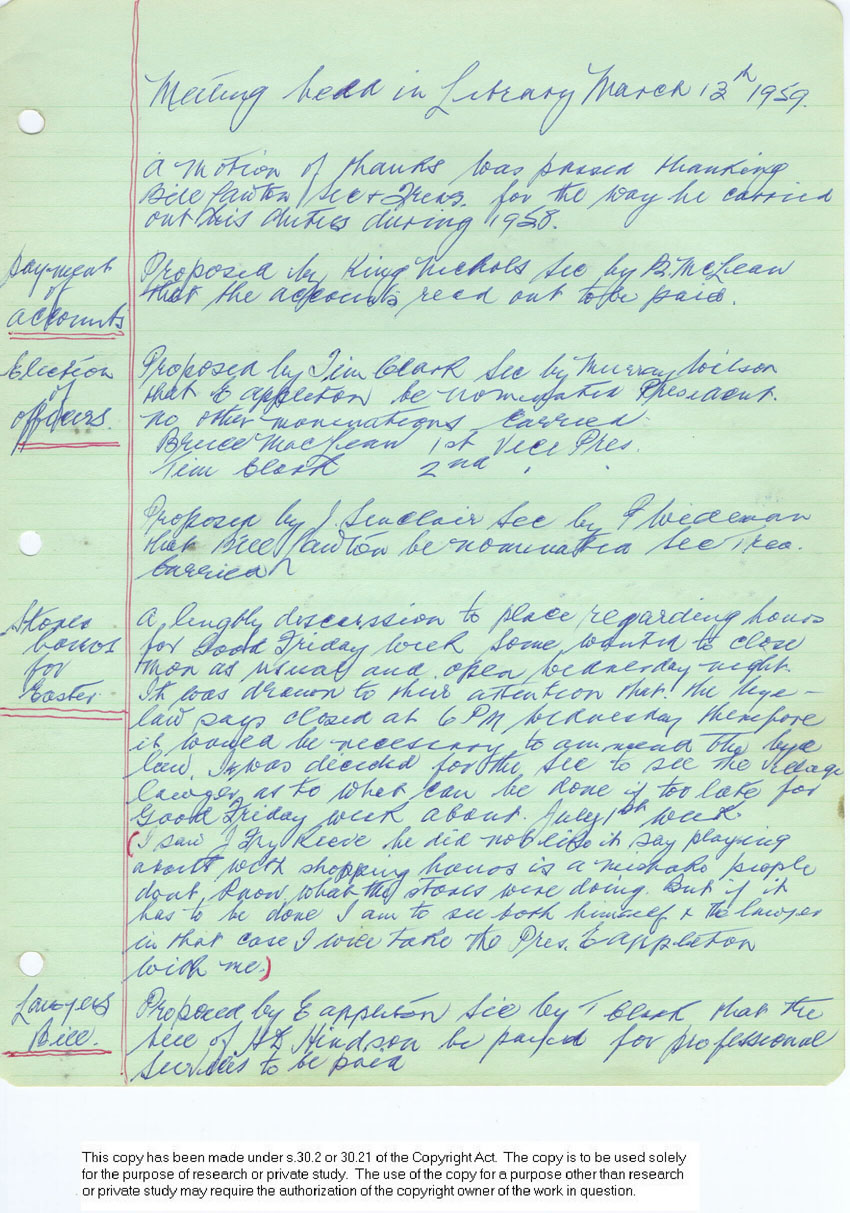 Meeting held in Library March 13th 1959.
A motion of thanks was passed thanking
Bill Lawton Sec + Treas. for the way he carried
out his duties during 1958.
Payment
of
accounts
Proposed by King Nichols Sec by B. McLean
that the accounts read out to be paid.
Election
of
officers.
Proposed by Tim Clark Sec by Murray Wilson
that E Appleton be nominated President.
no other nominations carried
Bruce MacLean 1st Vice Pres.
Tim Clark 2nd " "
Proposed by J. Sinclair Sec by P Wideman
that Bill Lawton be nominated Sec Trea.
Carried
Stores
hours
for
Easter
A lengthy discussion to place regarding hours
for Good Friday week some wanted to close
mon as usual and open Wednesday night.
It was drawn to their attention that the bye-
law says closed at 6 PM Wednesday therefore
it would be necessary to ammend the bye
law. It was decided for the Sec to see the Village
lawyer as to what can be done if too late for
Good Friday week about July 1st week.
(I saw J Fry Reeve he did not like it say playing
about with shopping hours is a mistake people
dont know what the stores were doing. But if it
has to be done I am to see both himself + the lawyer
in that case I will take the Pres. E Appleton
with me.)
Lawyers
Bill.
Proposed by E Appleton Sec by T Clark that the
bill of HD Hindson be paid for professional
Services to be paid
This copy has been made under s.30.2 or 30.21 of the Copyright Act. The copy is to be used solely
for the purpose of research or private study. The use of the copy for a purpose other than research
or private study may require the authorization of the copyright owner of the work in question.